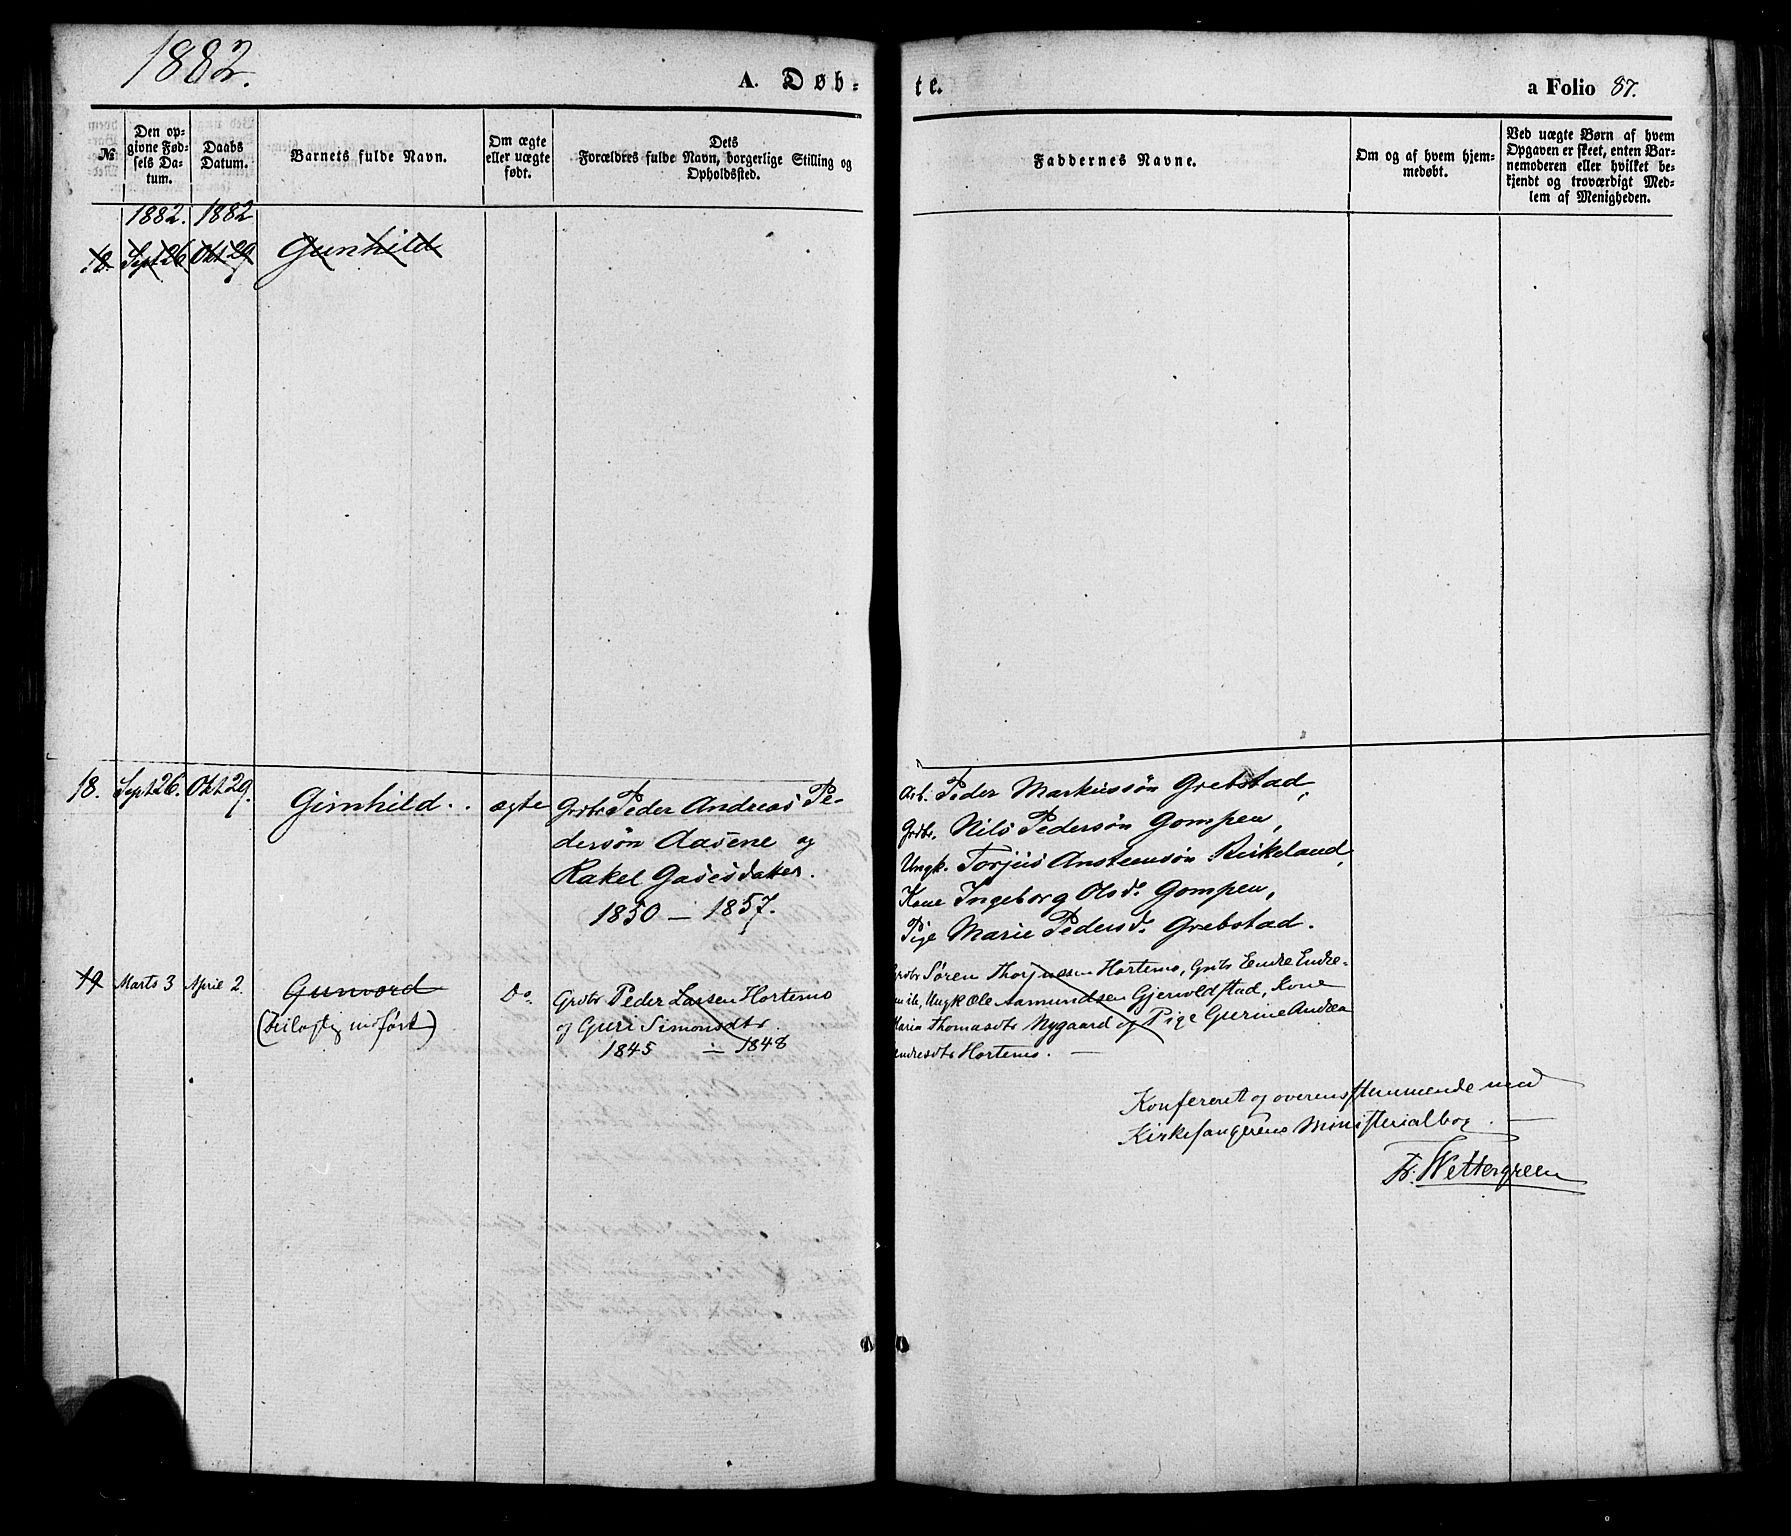 1882.
A. Døb-
te.
a Folio 87.
№
Den op-
givne Fød-
sels Da-
tum.
Daabs
Datum.
Barnets fulde Navn.
Om ægte
eller uægte
født.
Dets
Forældres fulde Navn, borgerlige Stilling og
Opholdssted.
Faddernes Navne.
Om og af hvem hjem-
medøbt.
Ved uægte Børn af hvem
Opgaven er skeet, enten Bar-
nemoderen eller hvilket be-
kjendt og troværdigt Med-
lem af Menigheden.
1882. 1882
18. Sept 26 Okt 29 Gunhild
18. Sept 26. Okt 29. Gunhild. ægte
Grdbr. Peder Andreas Pe-
dersøn Aasene og
Rakel Gasesdatter.
1850 — 1857.
Arb. Peder Markussøn Grebstad,
Grdbr. Nils Pedersøn Gompen,
Ungk. Torjus Ansteensøn Birkeland,
Kone Ingeborg Olsd. Gompen,
Pige Marie Pedersd. Grebstad.
19 Marts 3 April 2. Gunvord Do.
(Feilagtig indført)
Grdbr Peder Larsen Hortemo
og Guri Simonsdtr.
1845 — 1848
Grdbr Søren Thorjussen Hortemo, Grdb Eendre Endre-
Ungk Ole Aamundsen Gjervoldstad, Kone
Maria Thomasdtr Nygaard og Pige Gurine Andrea
Hortemo. —
Konfereret og overensstemmende med
Kirkesangerens Ministerialbog. —
Fr. Wettergreen